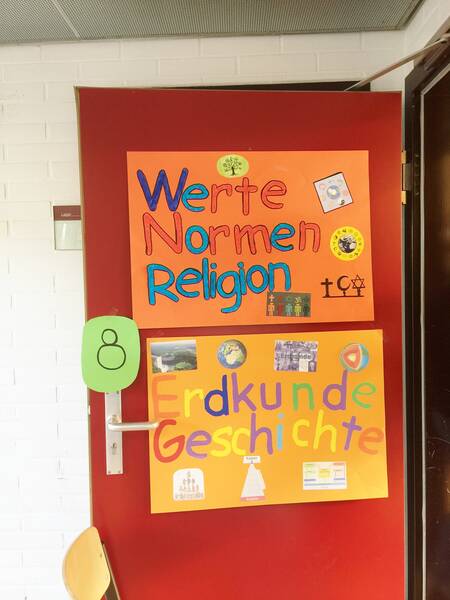 Werte
Normen
Religion
8
Erdkunde
Geschichte